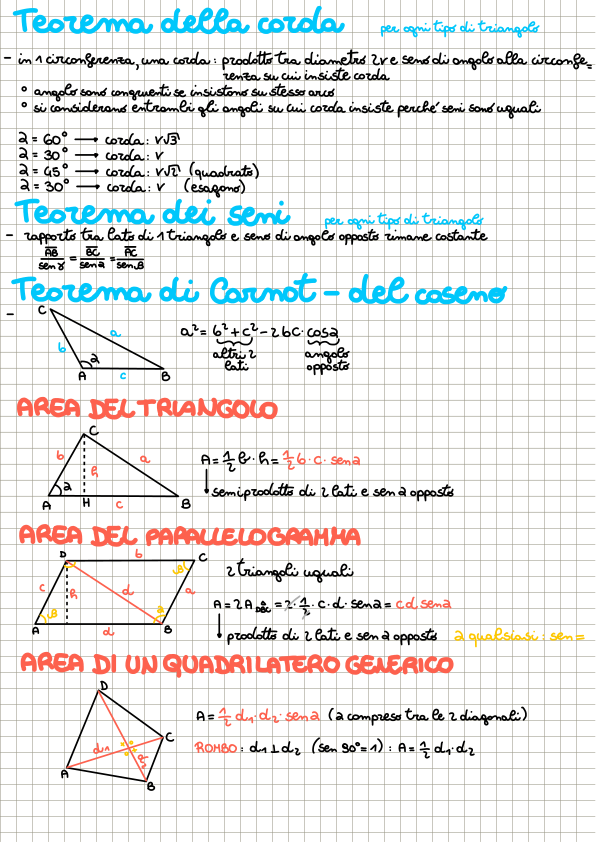 Teorema della corda per ogni tipo di triangolo
- in 1 circonferenza, una corda: prodotto tra diametro 2r e seno di angolo alla circonfe=
renza su cui insiste corda
° angolo sono congruenti se insistono su stesso arco
° si considerano entrambi gli angoli su cui corda insiste perché seni sono uguali
α = 60° → corda: r√3
α = 30° → corda: r
α = 45° → corda: r√2 (quadrato)
α = 30° → corda: r (esagono)
Teorema dei seni per ogni tipo di triangolo
- rapporto tra lato di 1 triangolo e seno di angolo opposto rimane costante
AB/senγ = BC/senα = AC/senβ
Teorema di Carnot - del coseno
-
C
b a
α
A c B
a² = b² + c² - 2bc · cosα
altri 2 angolo
lati opposto
AREA DEL TRIANGOLO
C
b h a
α
A H c B
A = 1/2 b · h = 1/2 b · c · senα
↓ semiprodotto di 2 lati e sen α opposto
AREA DEL PARALLELOGRAMMA
D b C
c h d a
β α β
A d B
2 triangoli uguali
A = 2A ABC = 2 · 1/2 · c · d · senα = cd senα
↓ prodotto di 2 lati e sen α opposto α qualsiasi: sen =
AREA DI UN QUADRILATERO GENERICO
D
C
d1 d2
A
B
A = 1/2 d1 · d2 · senα (α compreso tra le 2 diagonali)
ROMBO: d1 ⊥ d2 (sen 90° = 1) : A = 1/2 d1 · d2